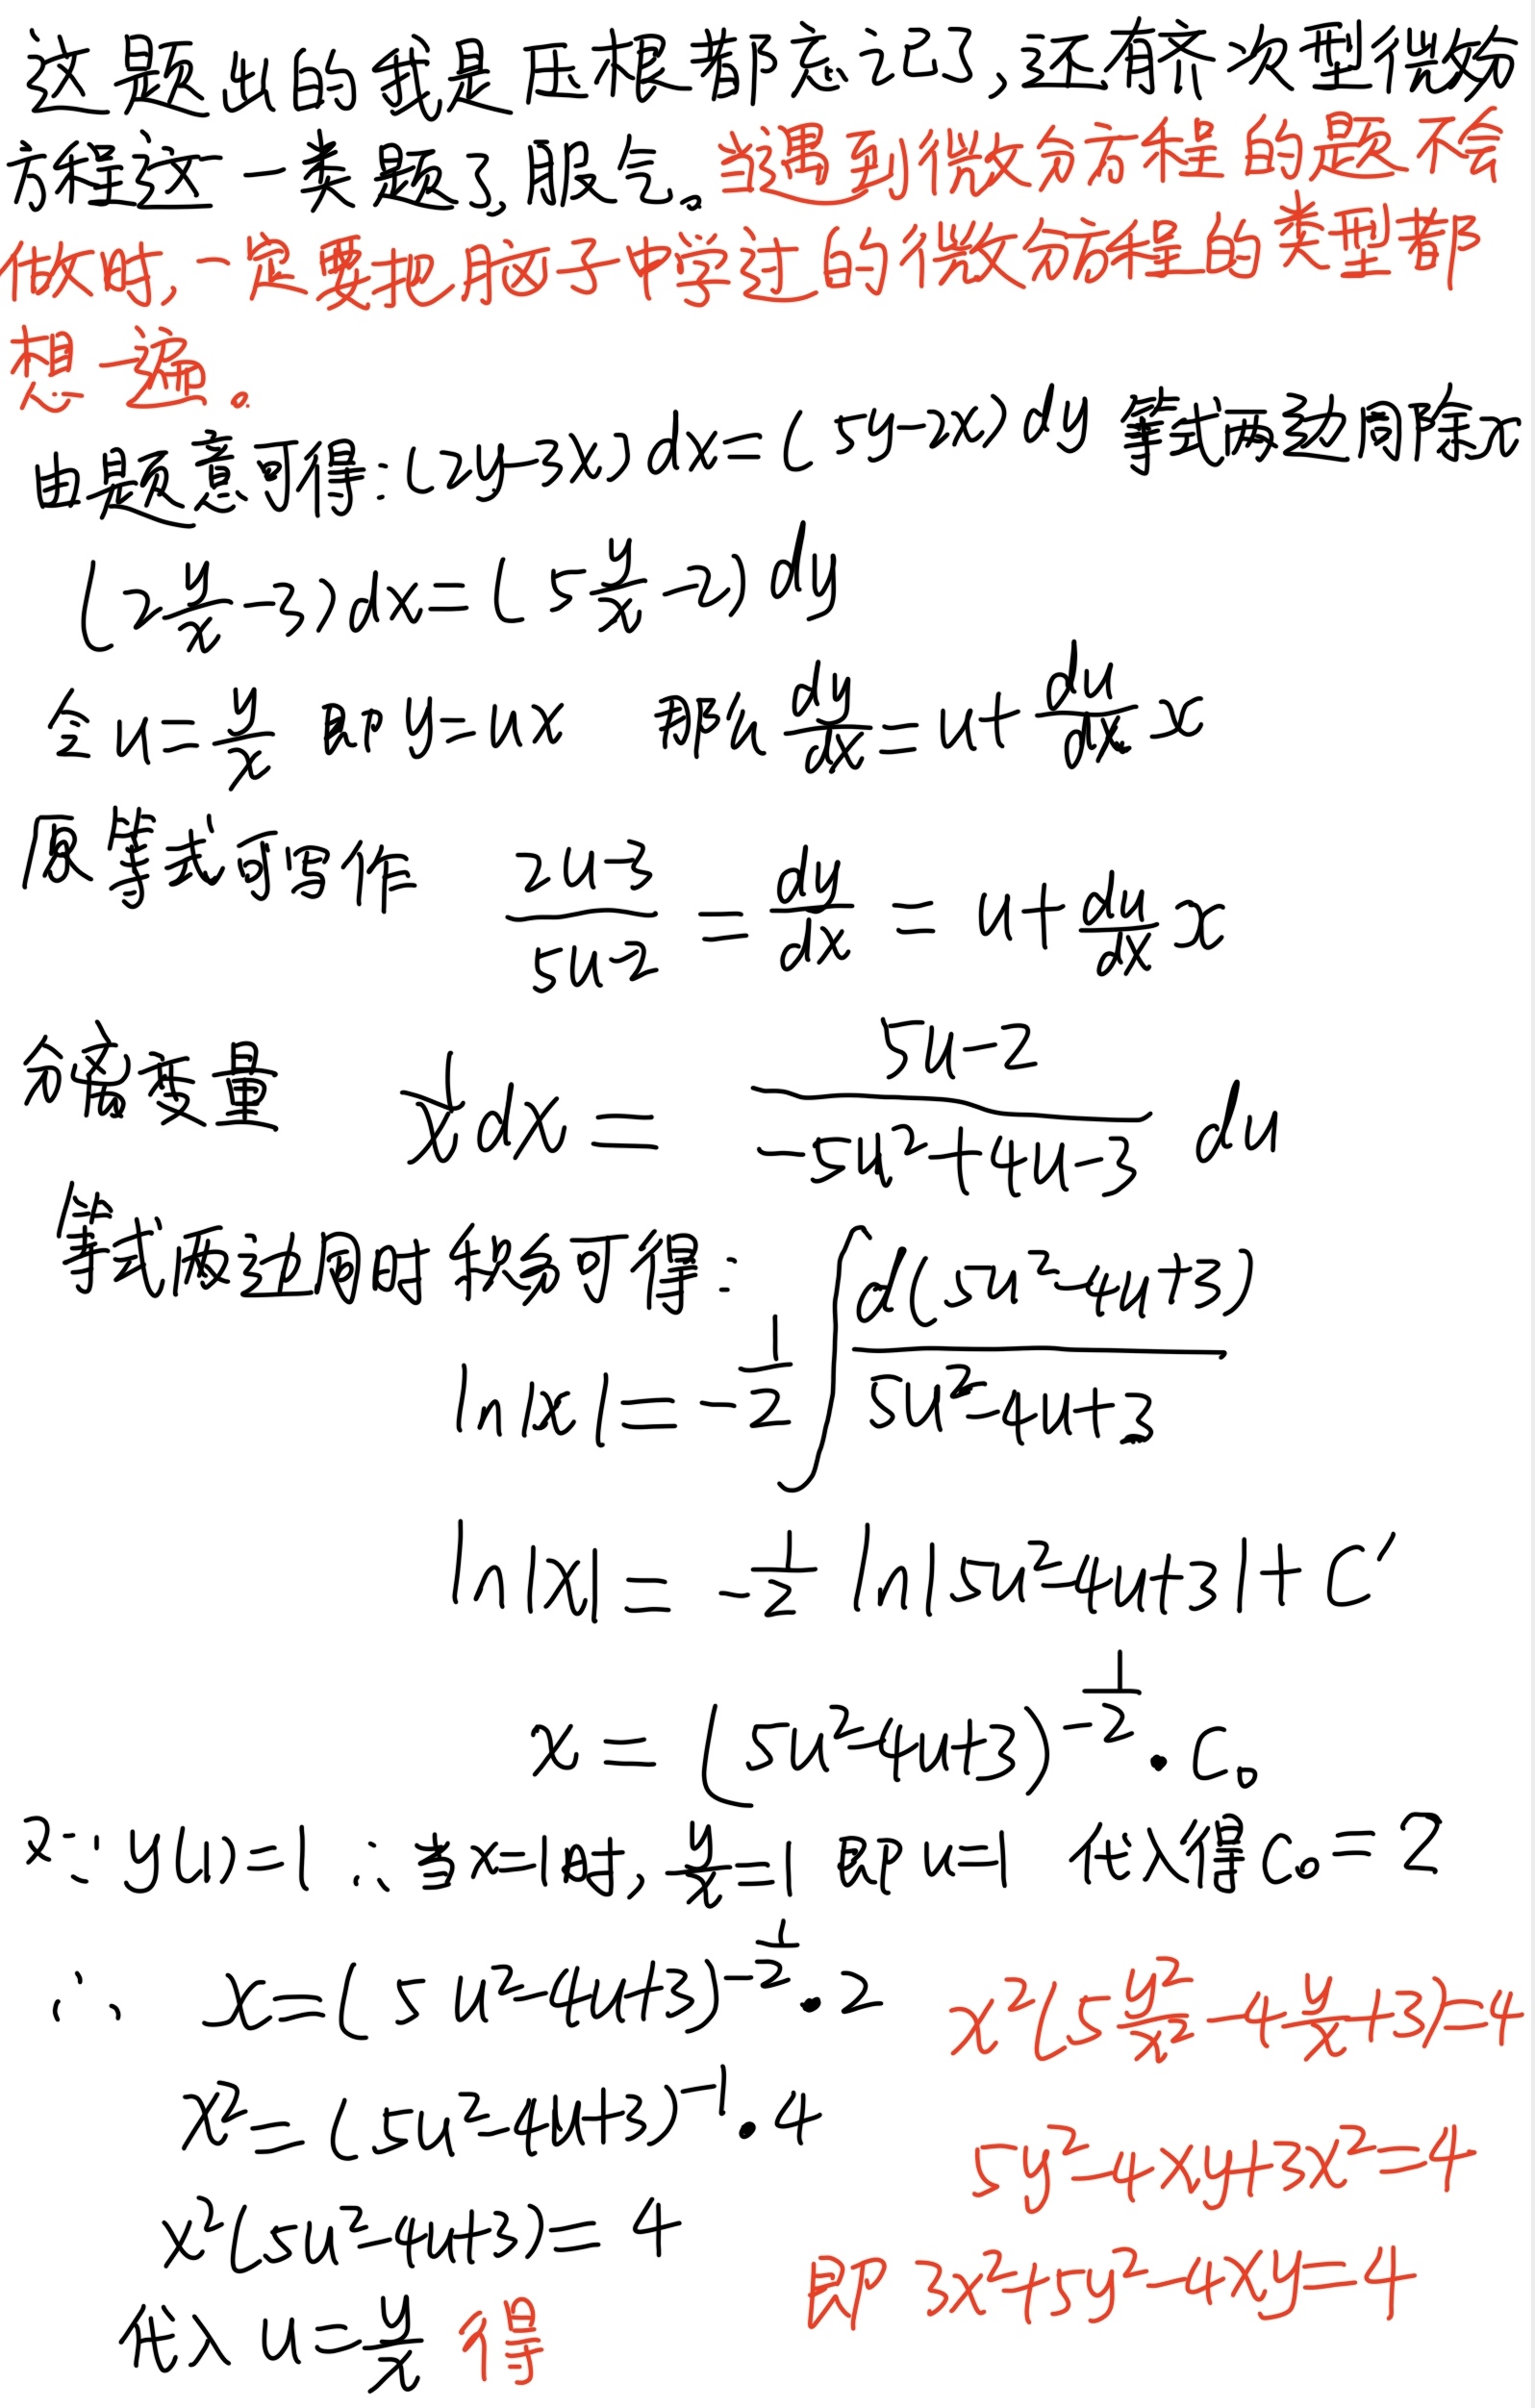 这题出的我是压根都忘记了,还有齐次型微分
方程这一类题了,服了。当遇到微分方程的题不会
做时,一定要把脑子中学过的微分方程的类型都
想一遍。
由题意可得:(2y-3x)dx=(5y-2x)dy 等式两边同除x
(2y/x-3)dx=(5y/x-2)dy
令u=y/x 即y=ux 那么dy/dx=u+du/dx x
原等式可写作 (2u-3)/(5u-2)=dy/dx=u+du/dx x
分离变量 1/x dx=(5u-2)/(-5u²+4u-3) du
等式两边同时积分可得:
ln|x|=-1/2∫d(5u²-4u+3)/(5u²-4u+3)
ln|x|=-1/2 ln|5u²-4u+3|+C′
x=(5u²-4u+3)^(-1/2)·C₀
又∵y(1)=1 ∴当x=1时,y/x=1 即u=1 代入得C₀=2
∴ x=(5u²-4u+3)^(-1/2)·2
x²=(5u²-4u+3)⁻¹·4
x²(5u²-4u+3)=4
代入u=y/x 得
x²(5y²/x²-4y/x+3)=4
5y²-4xy+3x²=4
即 3x²+5y²-4xy=4